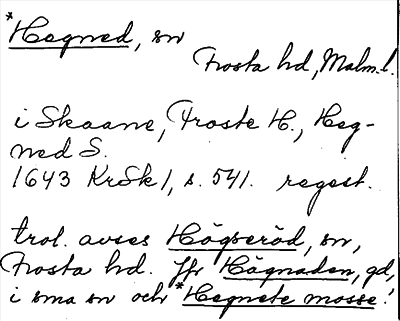 *Hegned, sn
Frosta hd, Malm. l.
i Skaane, Froste H., Heg-
ned S.
1643 KrSk 1, s. 541. regest.
trol. avses Högseröd, sn,
Frosta hd. Jfr Högnaden, gd,
i sma sn och *Hegnete mosse!